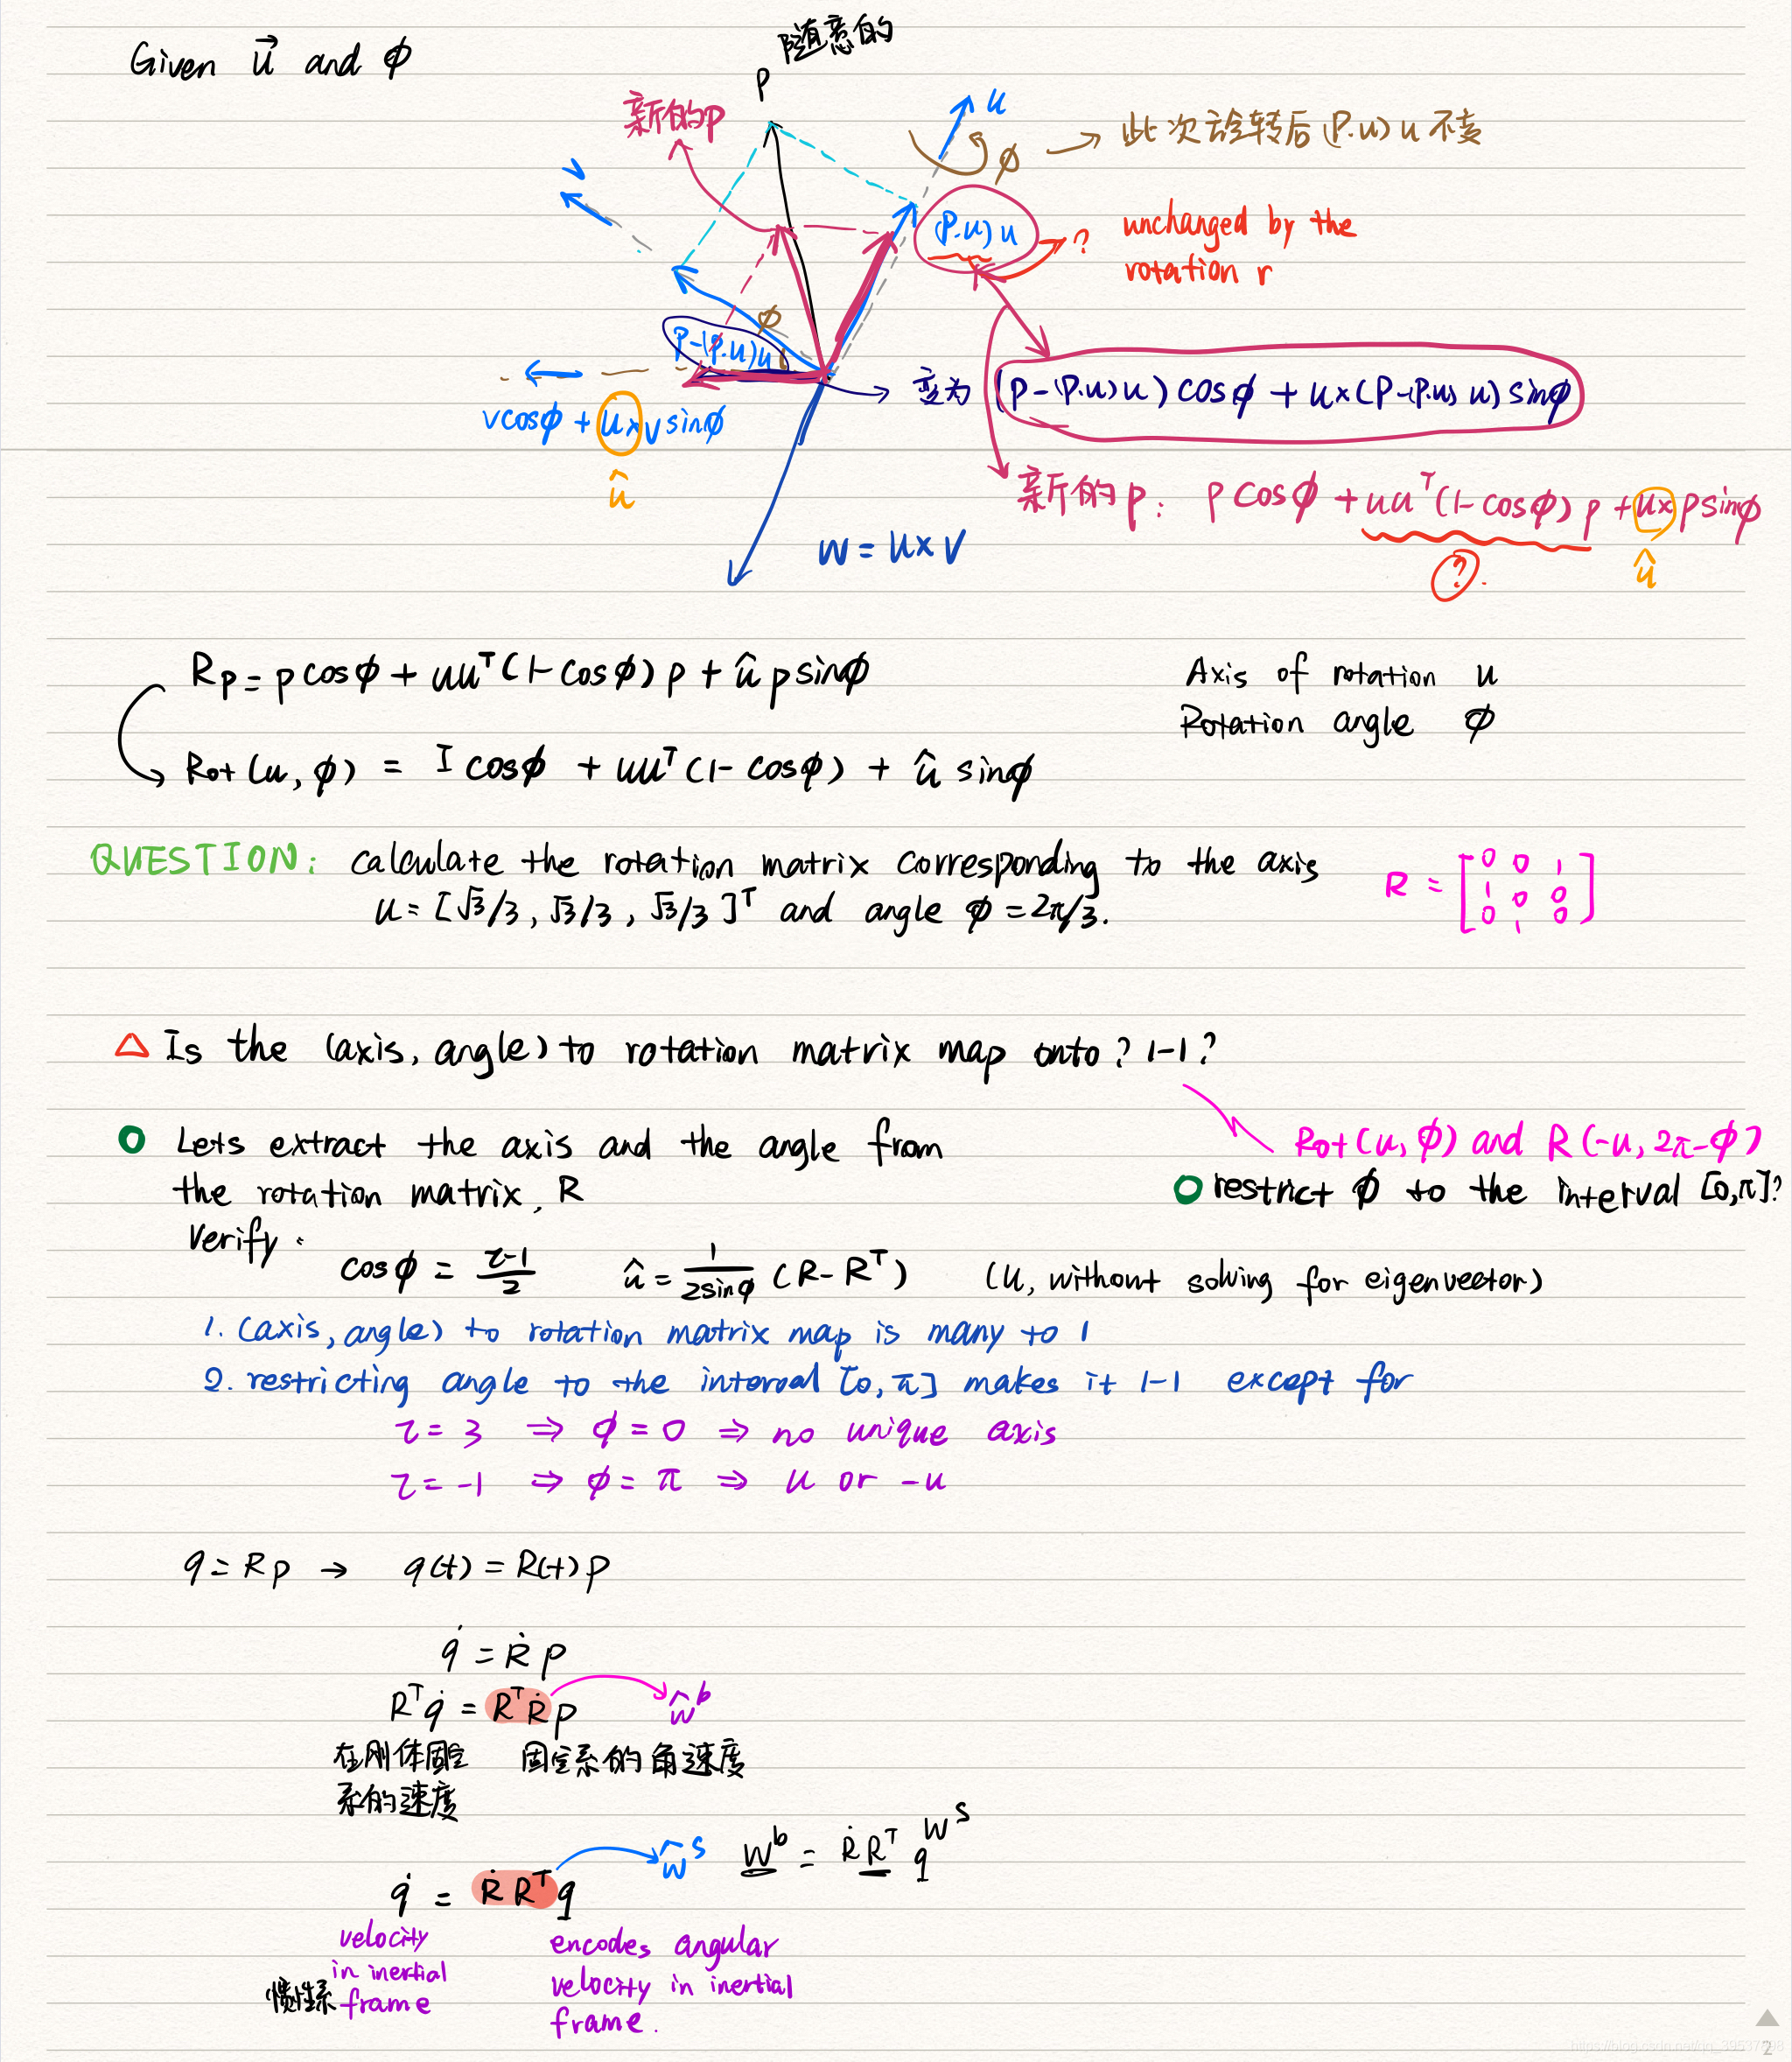 Given u⃗ and ϕ
随意的
P
新的p
u
ϕ → 此次旋转后(P.u)u不变
v
(P.u)u
?
unchanged by the
rotation r
ϕ
P-(P.u)u
变为 (P-(P.u)u)cosϕ + u×(P-(P.u)u)sinϕ
vcosϕ + u×v sinϕ
û
新的p: pcosϕ + uuᵀ(1-cosϕ)p + u×psinϕ
?.
û
w = u×v
Rp = pcosϕ + uuᵀ(1-cosϕ)p + û p sinϕ
Axis of rotation u
Rotation angle ϕ
Rot(u,ϕ) = I cosϕ + uuᵀ(1-cosϕ) + û sinϕ
QUESTION: calculate the rotation matrix corresponding to the axis
u = [√3/3, √3/3, √3/3]ᵀ and angle ϕ = 2π/3.
R = [0 0 1
1 0 0
0 1 0]
△ Is the (axis, angle) to rotation matrix map onto? 1-1?
Rot(u,ϕ) and R(-u, 2π-ϕ)
restrict ϕ to the interval [0,π]?
Lets extract the axis and the angle from
the rotation matrix, R
Verify.
cosϕ = (τ-1)/2 û = 1/(2sinϕ) (R-Rᵀ) (u, without solving for eigenvector)
1. (axis, angle) to rotation matrix map is many to 1
2. restricting angle to the interval [0,π] makes it 1-1 except for
τ = 3 ⇒ ϕ = 0 ⇒ no unique axis
τ = -1 ⇒ ϕ = π ⇒ u or -u
q = Rp → q(t) = R(t)p
q̇ = Ṙp
Rᵀq̇ = RᵀṘp
ŵᵇ
在刚体固定
系的速度
固定系的角速度
q̇ = ṘRᵀq
ŵˢ
wᵇ = ṘRᵀ q wˢ
velocity
in inertial
frame
惯性系
encodes angular
velocity in inertial
frame.
2